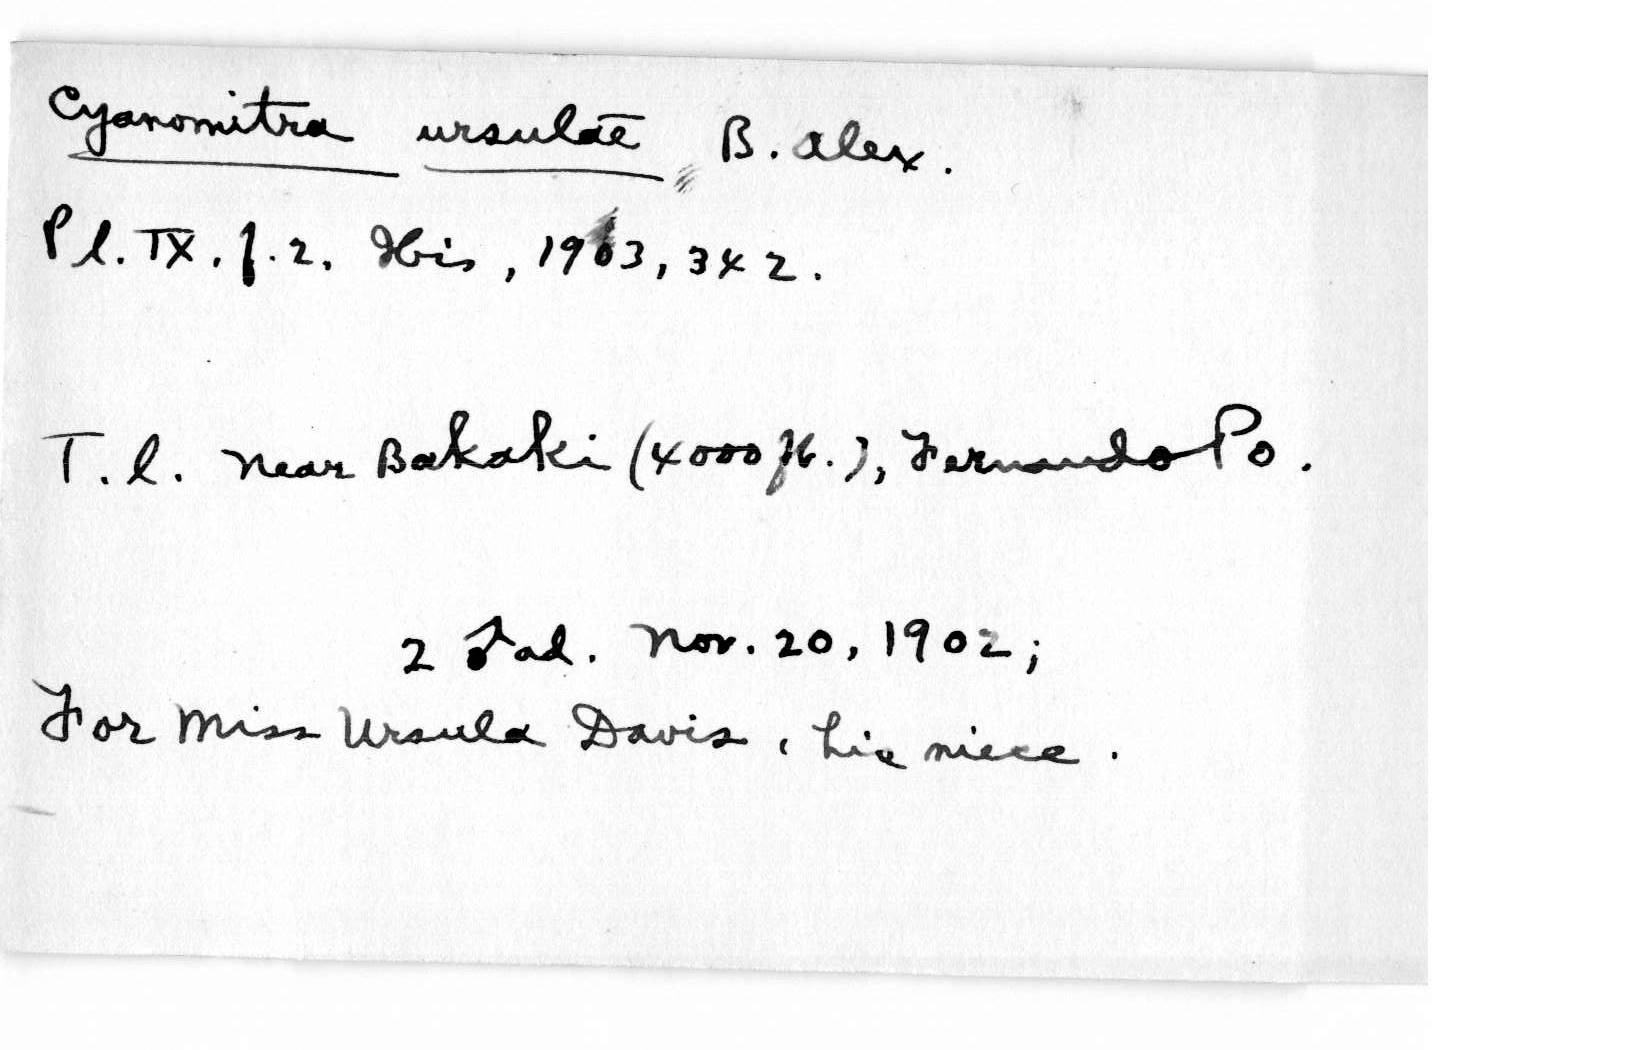 Cyanomitra ursulae B. Alex.
Pl. IX. f. 2. Ibis, 1903, 342.
T. l. Near Bakaki (4000 ft.), Fernando Po.
2 ♂ ad. Nov. 20, 1902;
For Miss Ursula Davis, his niece.